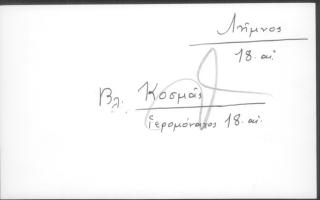 Λῆμνος
18. αἰ.
Βλ. Κοσμᾶς
ἱερομόναχος 18. αἰ.